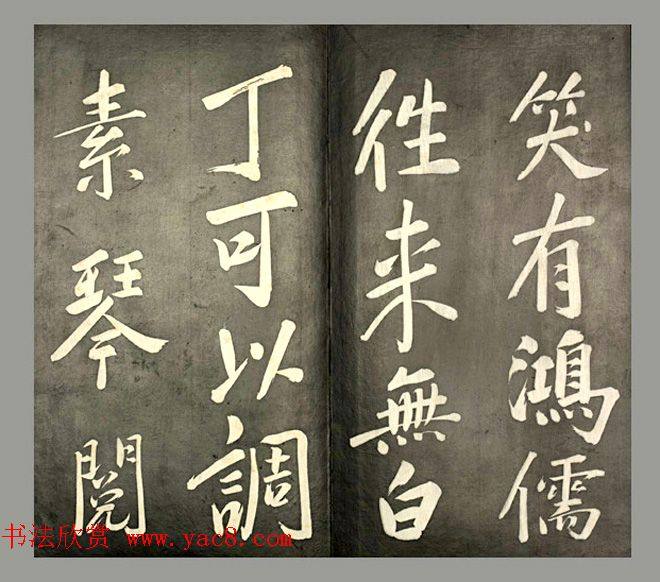 笑有鴻儒
徃来無白
丁可以調
素琴閱
书法欣赏 www.yac8.com